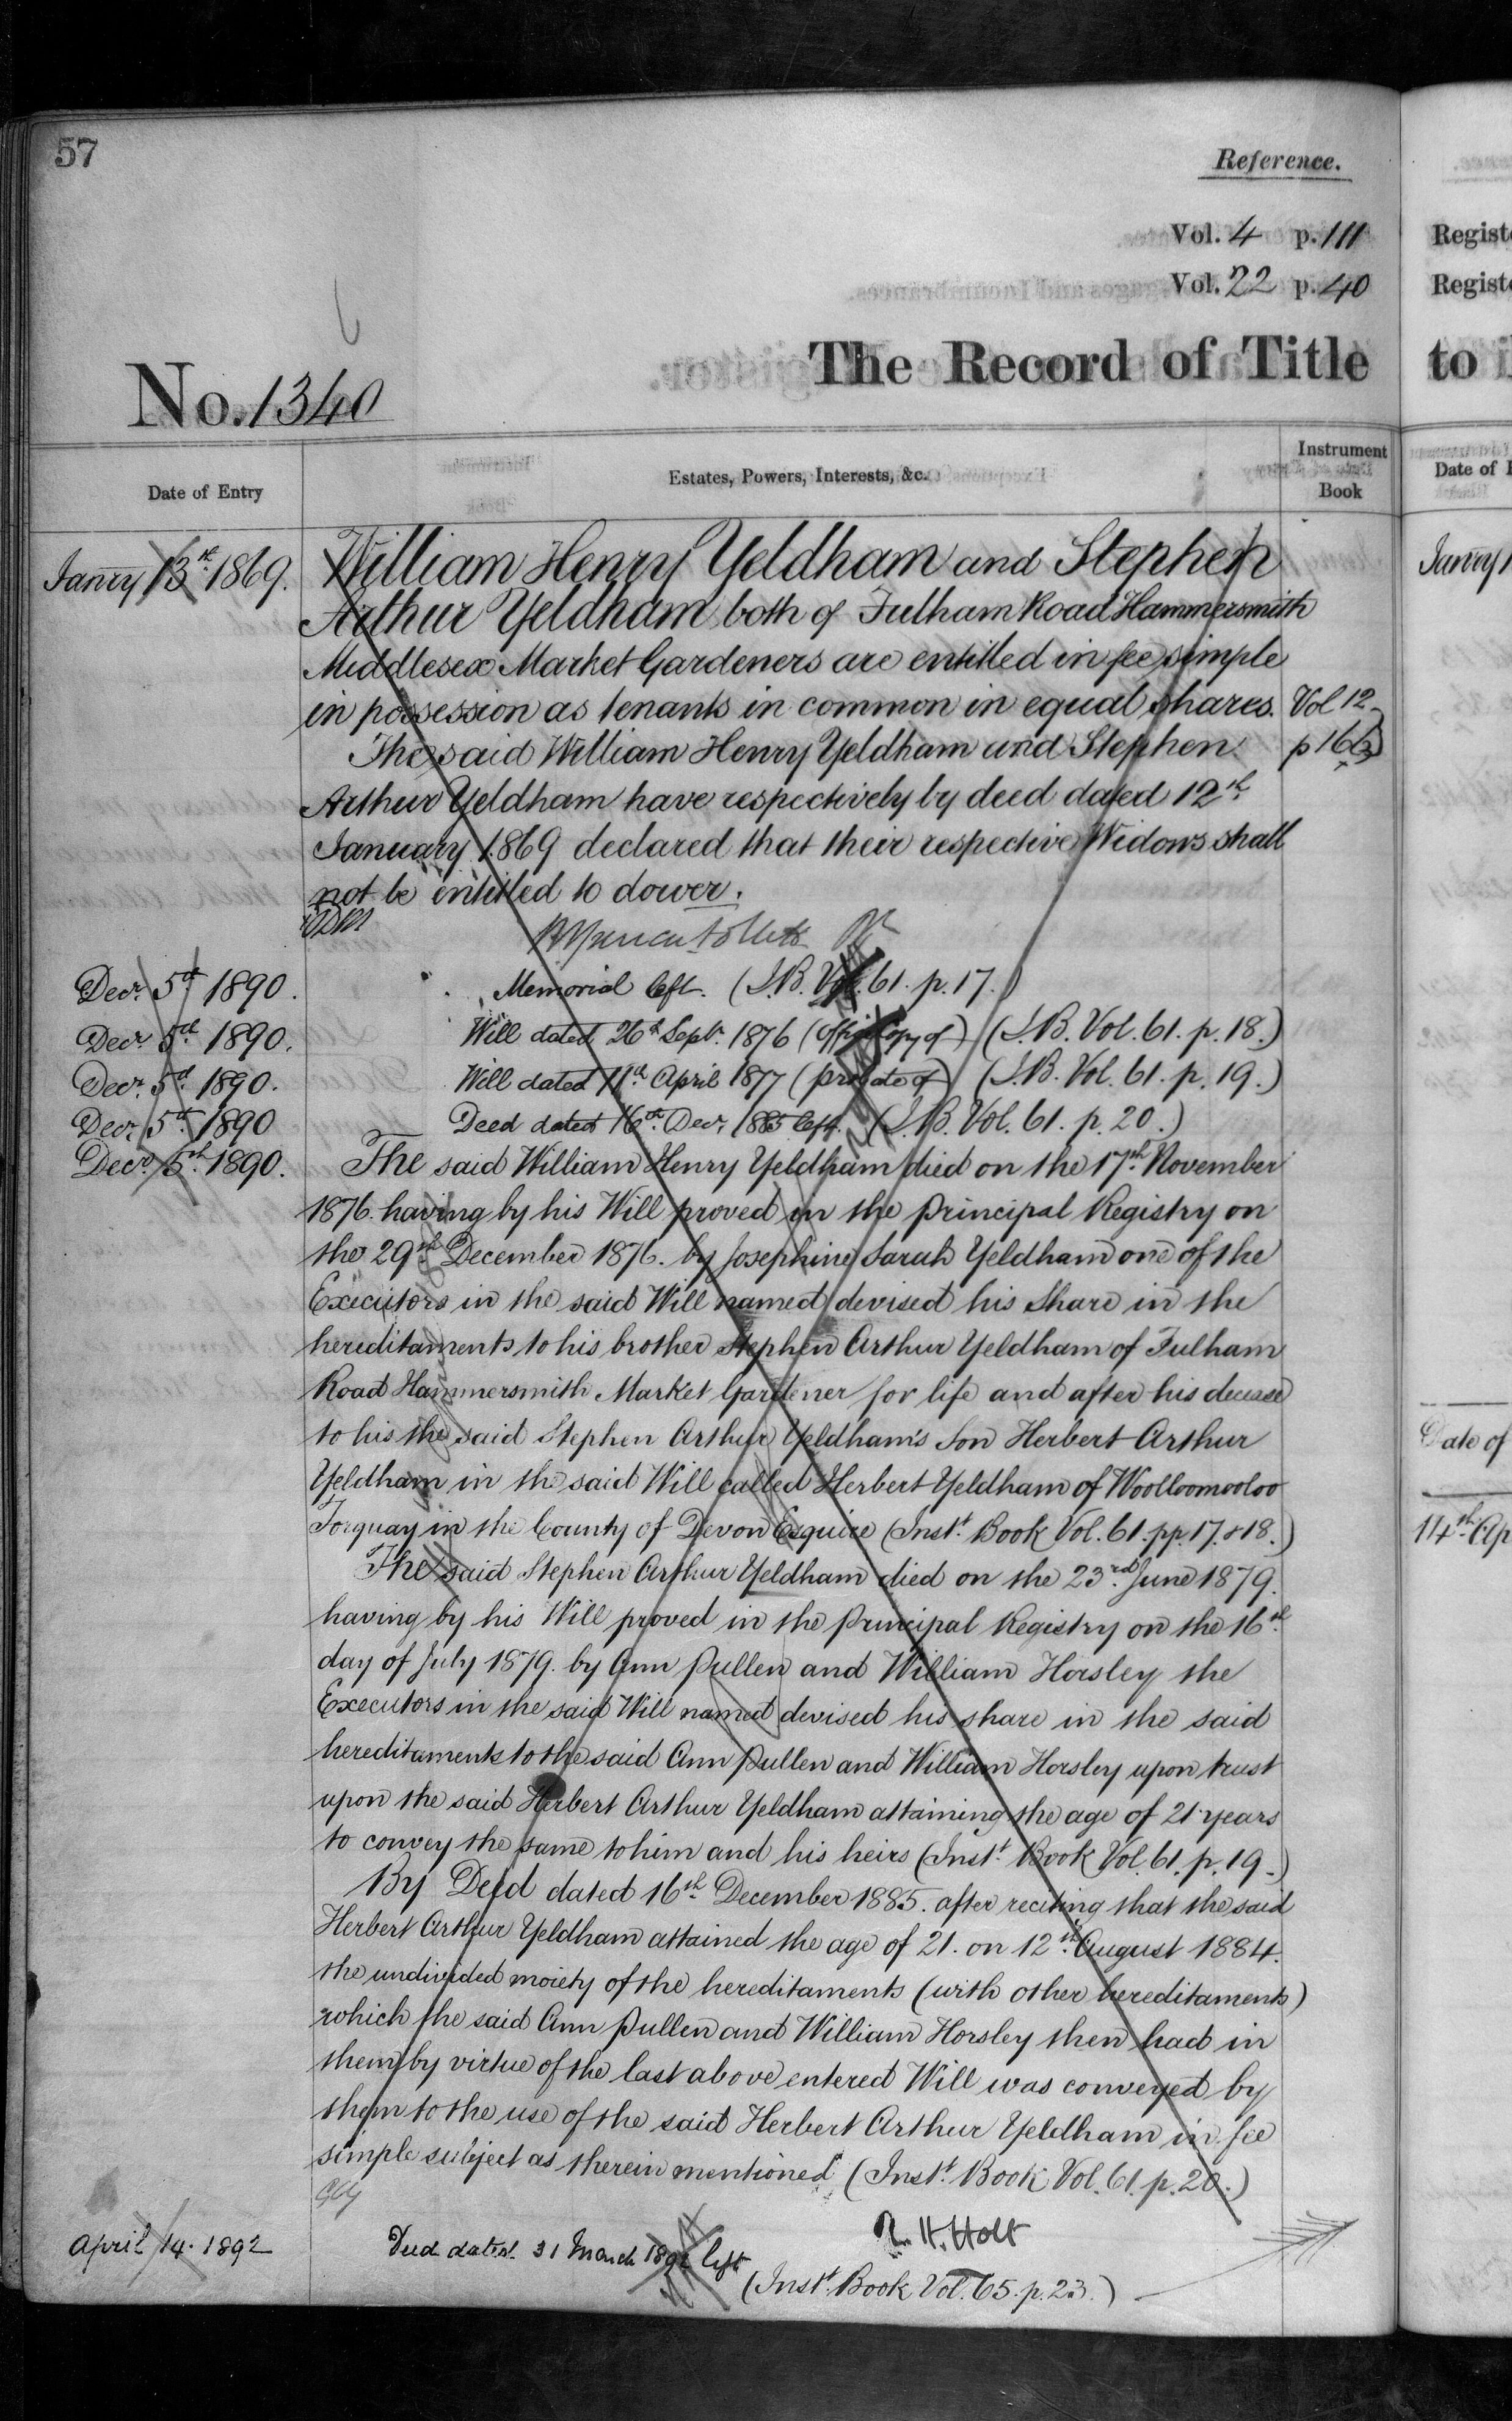 57
Reference.
Vol. 4 p. 111
Vol. 22 p. 40
The Record of Title
No. 1340
Date of Entry
Estates, Powers, Interests, &c.
Instrument Book
Janry 13th 1869.
William Henry Yeldham and Stephen
Arthur Yeldham both of Fulham Road Hammersmith
Middlesex Market Gardeners are entitled in fee simple
in possession as tenants in common in equal shares. Vol 12
The said William Henry Yeldham and Stephen
Arthur Yeldham have respectively by deed dated 12th
January 1869 declared that their respective Widows shall
not be entitled to dower.
Decr. 5th 1890. Memorial left. (I.B. Vol. 61. p. 17.)
Decr. 5th 1890. Will dated 26th Septr. 1876 (Office Copy of) (I.B. Vol. 61. p. 18.)
Decr. 5th 1890. Will dated 11th April 1877 (probate of) (I.B. Vol. 61. p. 19.)
Decr. 5th 1890 Deed dated 16th Decr. 1885 left. (I.B. Vol. 61. p. 20.)
Decr. 5th 1890. The said William Henry Yeldham died on the 17th November
1876. having by his Will proved in the Principal Registry on
the 29th December 1876. by Josephine Sarah Yeldham one of the
Executors in the said Will named devised his Share in the
hereditaments to his brother Stephen Arthur Yeldham of Fulham
Road Hammersmith Market Gardener for life and after his decease
to his the said Stephen Arthur Yeldham's Son Herbert Arthur
Yeldham in the said Will called Herbert Yeldham of Woolloomooloo
Torquay in the County of Devon Esquire (Inst. Book Vol. 61. pp. 17. & 18.)
The said Stephen Arthur Yeldham died on the 23rd June 1879.
having by his Will proved in the Principal Registry on the 16th
day of July 1879. by Ann Pullen and William Horsley the
Executors in the said Will named devised his share in the said
hereditaments to the said Ann Pullen and William Horsley upon trust
upon the said Herbert Arthur Yeldham attaining the age of 21 years
to convey the same to him and his heirs (Inst. Book Vol. 61. p. 19.)
By Deed dated 16th December 1885. after reciting that the said
Herbert Arthur Yeldham attained the age of 21. on 12th August 1884.
the undivided moiety of the hereditaments (with other hereditaments)
which the said Ann Pullen and William Horsley then had in
them by virtue of the last above entered Will was conveyed by
them to the use of the said Herbert Arthur Yeldham in fee
simple subject as therein mentioned (Inst. Book Vol. 61. p. 20.)
R. H. Holt
April 14. 1892 Deed dated 31 March 1892 left
(Inst. Book Vol. 65. p. 23.)
Regist
Regist
to i
Date of
Janry
Date of
14th Ap